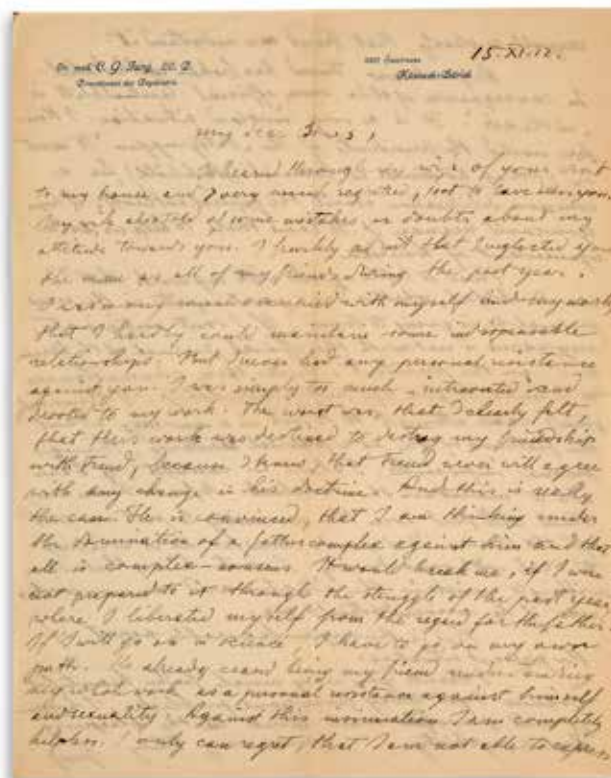 Dr. med. C. G. Jung, LL. D.
Privatdocent der Psychiatrie
1003 Seestrasse
Küsnach-Zürich
15.XI.12.
my dear Jones,
I learn through my wife of your visit
to my house and I very much regretted, not to have seen you.
My wife also told of some mistakes or doubts about my
attitude towards you. I frankly admit that I neglected you
the same as all of my friends during the past year.
I was so much occupied with myself and my work
that I hardly could maintain some indispensable
relationships. But I never had any personal resistance
against you. I was simply too much "introverted" and
devoted to my work. The worst was, that I clearly felt,
that this work was destined to destroy my friendship
with Freud, because I knew, that Freud never will agree
with any change in his doctrine. And this is really
the case. He is convinced, that I am thinking under
the domination of a fathercomplex against him and that
all is complex-nonsens. It would break me, if I were
not prepared to it through the struggle of the past year
where I liberated myself from the regard for the father.
If I will go on in science, I have to go on my own
path. He already ceased being my friend understanding
my whole work as a personal resistance against himself
and sexuality. Against this insinuation I am completely
helpless. I only can regret, that I am not able to express